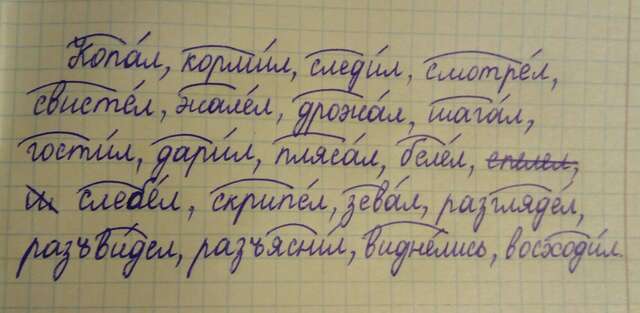 Копа́л, корми́л, следи́л, смотре́л,
свисте́л, жале́л, дрожа́л, шага́л,
гости́л, дари́л, пляса́л, беле́л,
слебе́л, скрипе́л, зева́л, разгляде́л,
разъви́дел, разъясни́л, видне́лись, восходи́л.